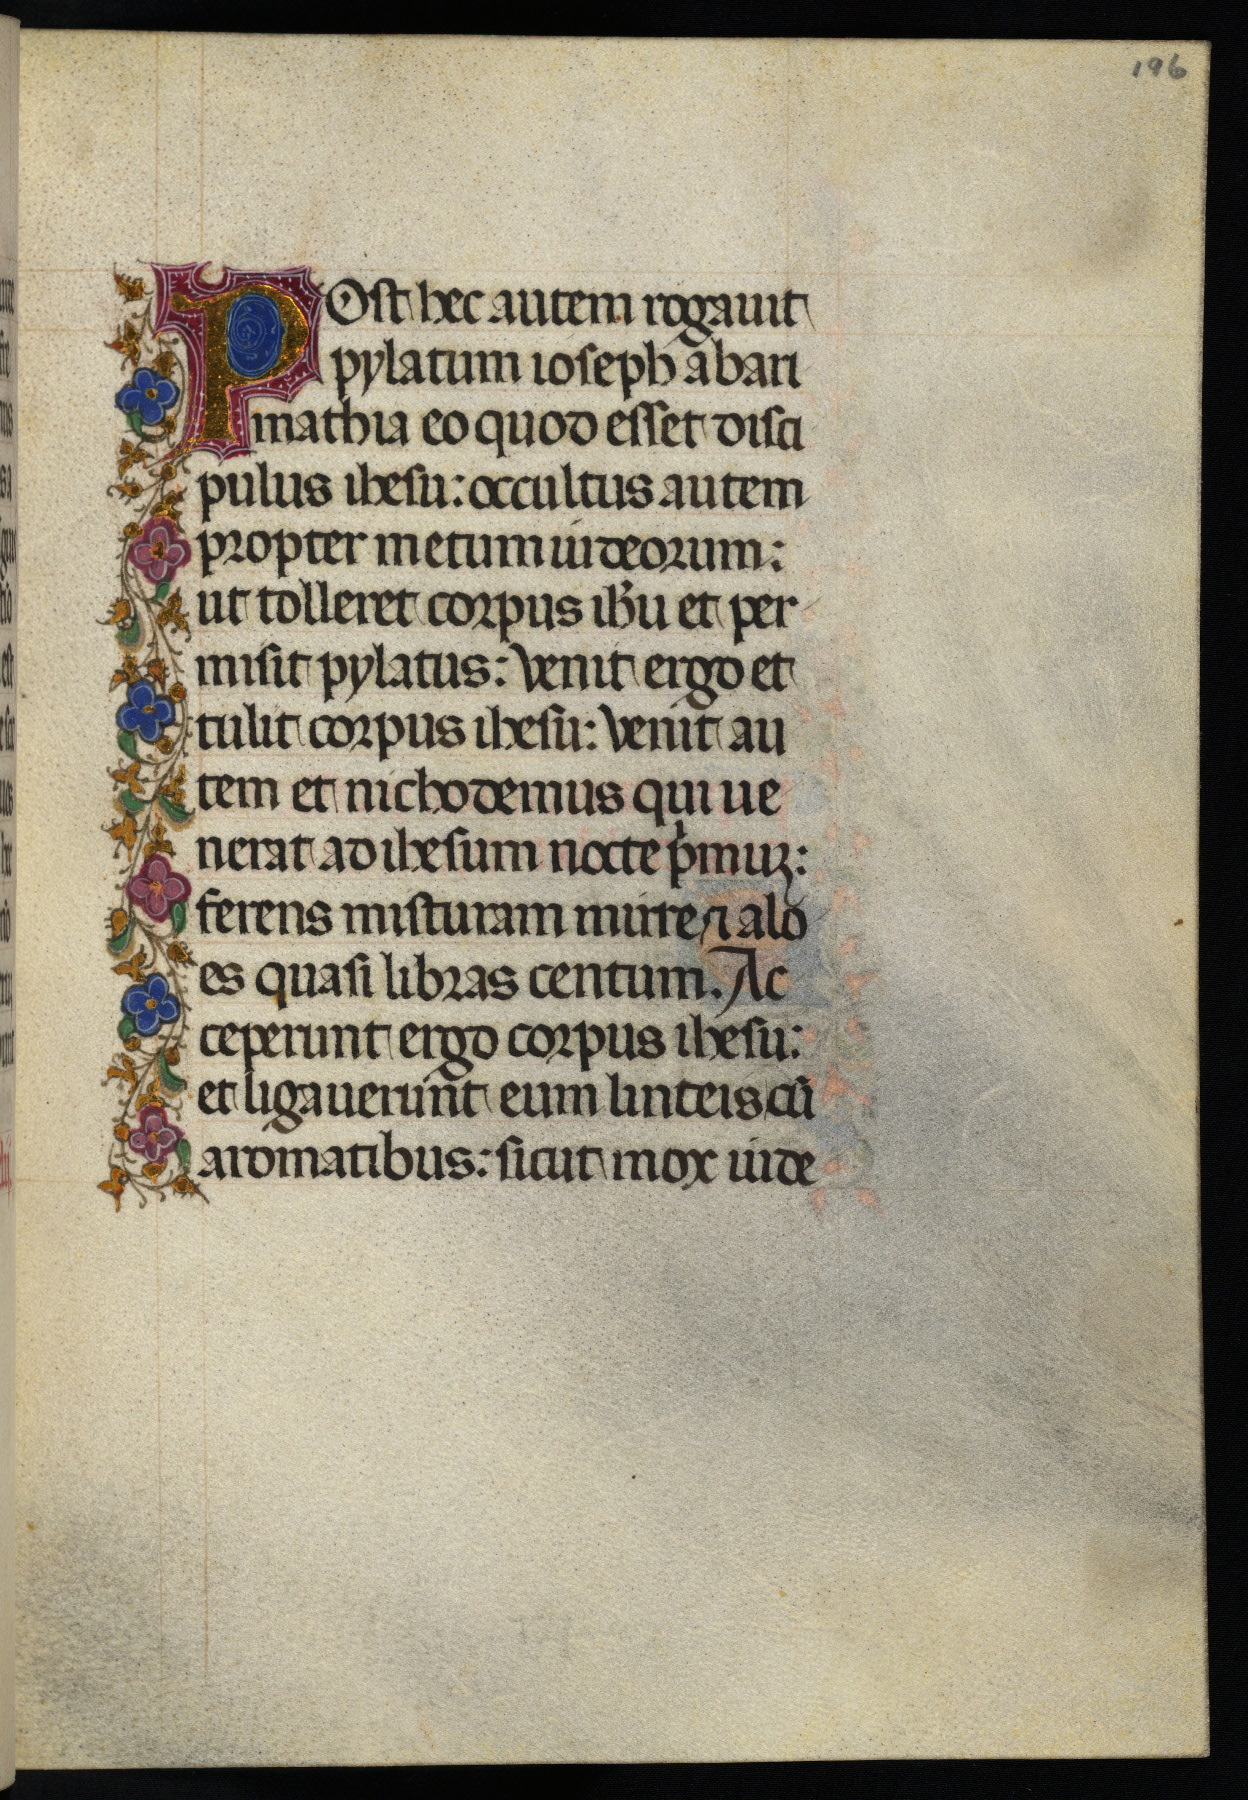 196
POst hec autem rogauit
pylatum ioseph abari
mathia eo quod esset disci
pulus ihesu: occultus autem
propter metum iudeorum:
ut tolleret corpus ihu et per
misit pylatus: Venit ergo et
tulit corpus ihesu: Venit au
tem et nichodemus qui ue
nerat ad ihesum nocte pͥmuꝫ:
ferens misturam mirre ⁊ alo
es quasi libras centum. Ac
ceperunt ergo corpus ihesu:
et ligauerunt eum linteis cū
aromatibus: sicut mox iude